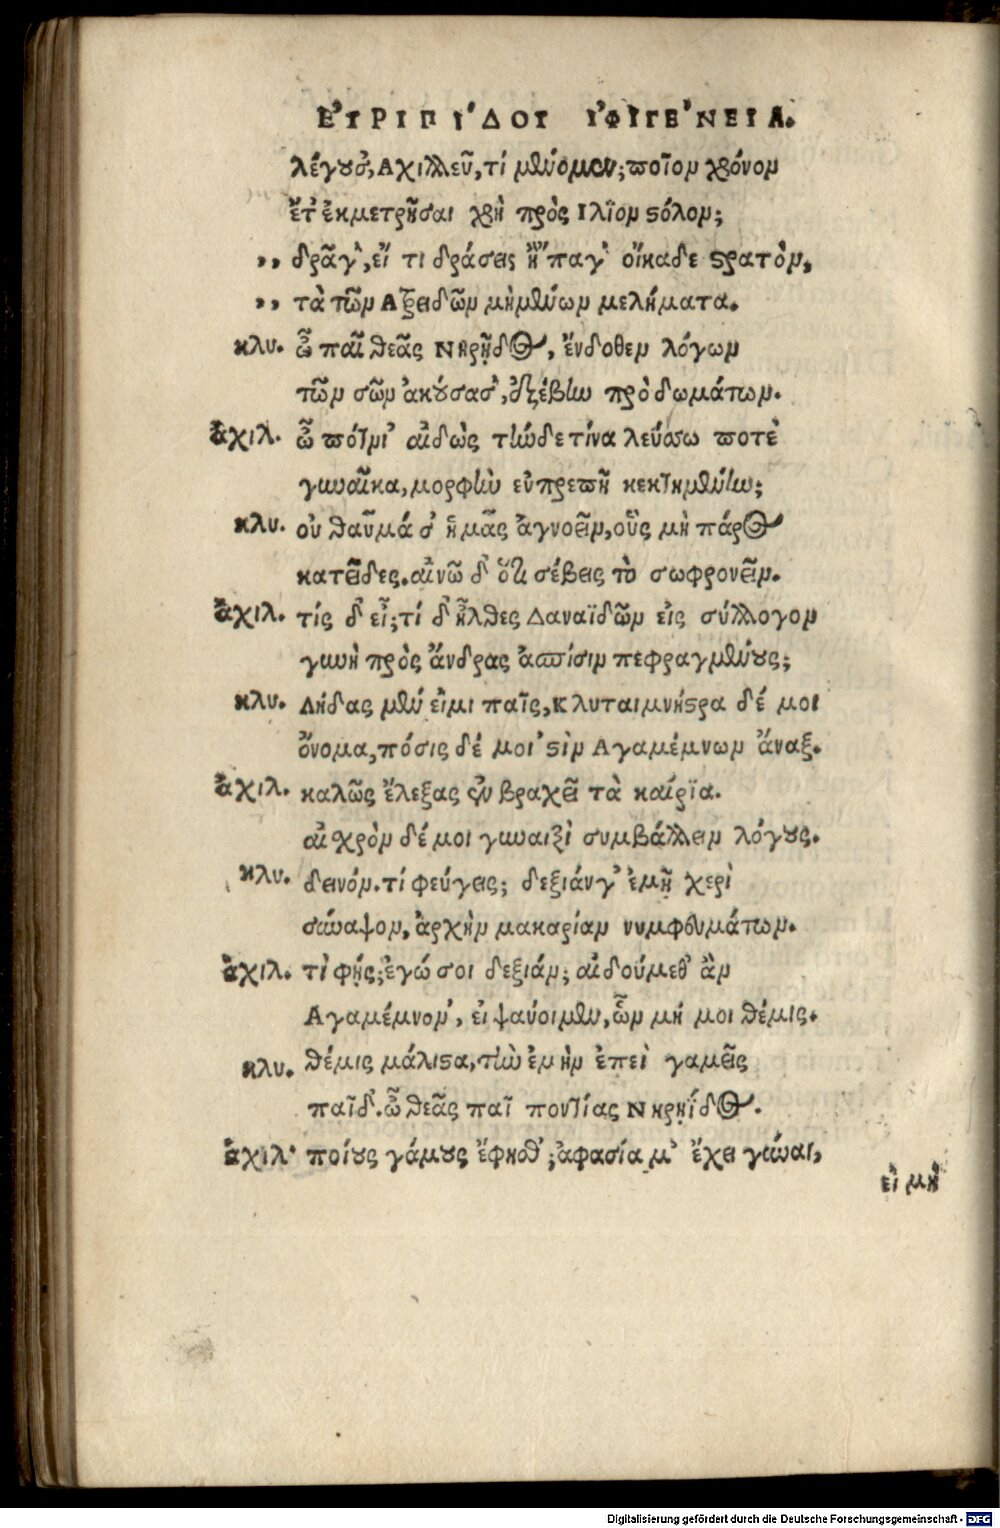 ΕΥ̓ΡΙΠΙ´ΔΟΥ ἸΦΙΓΕ´ΝΕΙΑ.
λέγουσ, Ἀχιλλεῦ, τί μένομεν; ποῖον χρόνον
ἔτ᾽ ἐκμετρῆσαι χρὴ πρὸς Ιλΐου στόλον;
,, δρᾶγ᾽, εἴ τι δράσεις ἢ ᾽παγ᾽ οἴκαδε στρατὸν,
,, τὰ τῶν Ατρειδῶν μὴ μένων μελήματα.
κλυ. ὦ παῖ θεᾶς Νηρῇδος, ἔνδοθεν λόγων
τῶν σῶν ἀκούσασ᾽, ἐξέβην πρὸ δωμάτων.
ἀχιλ. ὦ πότνι᾽ αἰδὼς τήνδε τίνα λεύσω ποτὲ
γυναῖκα, μορφὴν εὐπρεπῆ κεκτημένην;
κλυ. οὐ θαῦμά σ᾽ ἡμᾶς ἀγνοεῖν, οὓς μὴ πάρος
κατεῖδες. αἰνῶ δ᾽ ὅτι σέβεις τὸ σωφρονεῖν.
ἀχιλ. τίς δ᾽ εἶ; τί δ᾽ ἦλθες Δαναϊδῶν εἰς σύλλογον
γυνὴ πρὸς ἄνδρας ἀσπίσιν πεφραγμένους;
κλυ. Λήδας μέν εἰμι παῖς, Κλυταιμνήστρα δέ μοι
ὄνομα, πόσις δέ μοι ᾽στὶν Αγαμέμνων ἄναξ.
ἀχιλ. καλῶς ἔλεξας ἐν βραχεῖ τὰ καίρϊα.
αἰσχρὸν δέ μοι γυναιξὶ συμβάλλειν λόγους.
κλυ. δεινόν. τί φεύγεις; δεξιάν γ᾽ ἐμῇ χερὶ
σύναψον, ἀρχὴν μακαρίαν νυμφευμάτων.
ἀχιλ. τί φής; ἐγώ σοι δεξιάν; αἰδούμεθ᾽ ἂν
Αγαμέμνον᾽, εἰ ψαύοιμεν, ὧν μή μοι θέμις.
κλυ. θέμις μάλιστα, τὴν ἐμὴν ἐπεὶ γαμεῖς
παῖδ᾽. ὦ θεᾶς παῖ ποντίας Νηρηΐδος.
ἀχιλ· ποίους γάμους ἔφησθ᾽; ἀφασία μ᾽ ἔχει γύναι,
εἰ μὴ
Digitalisierung gefördert durch die Deutsche Forschungsgemeinschaft - DFG